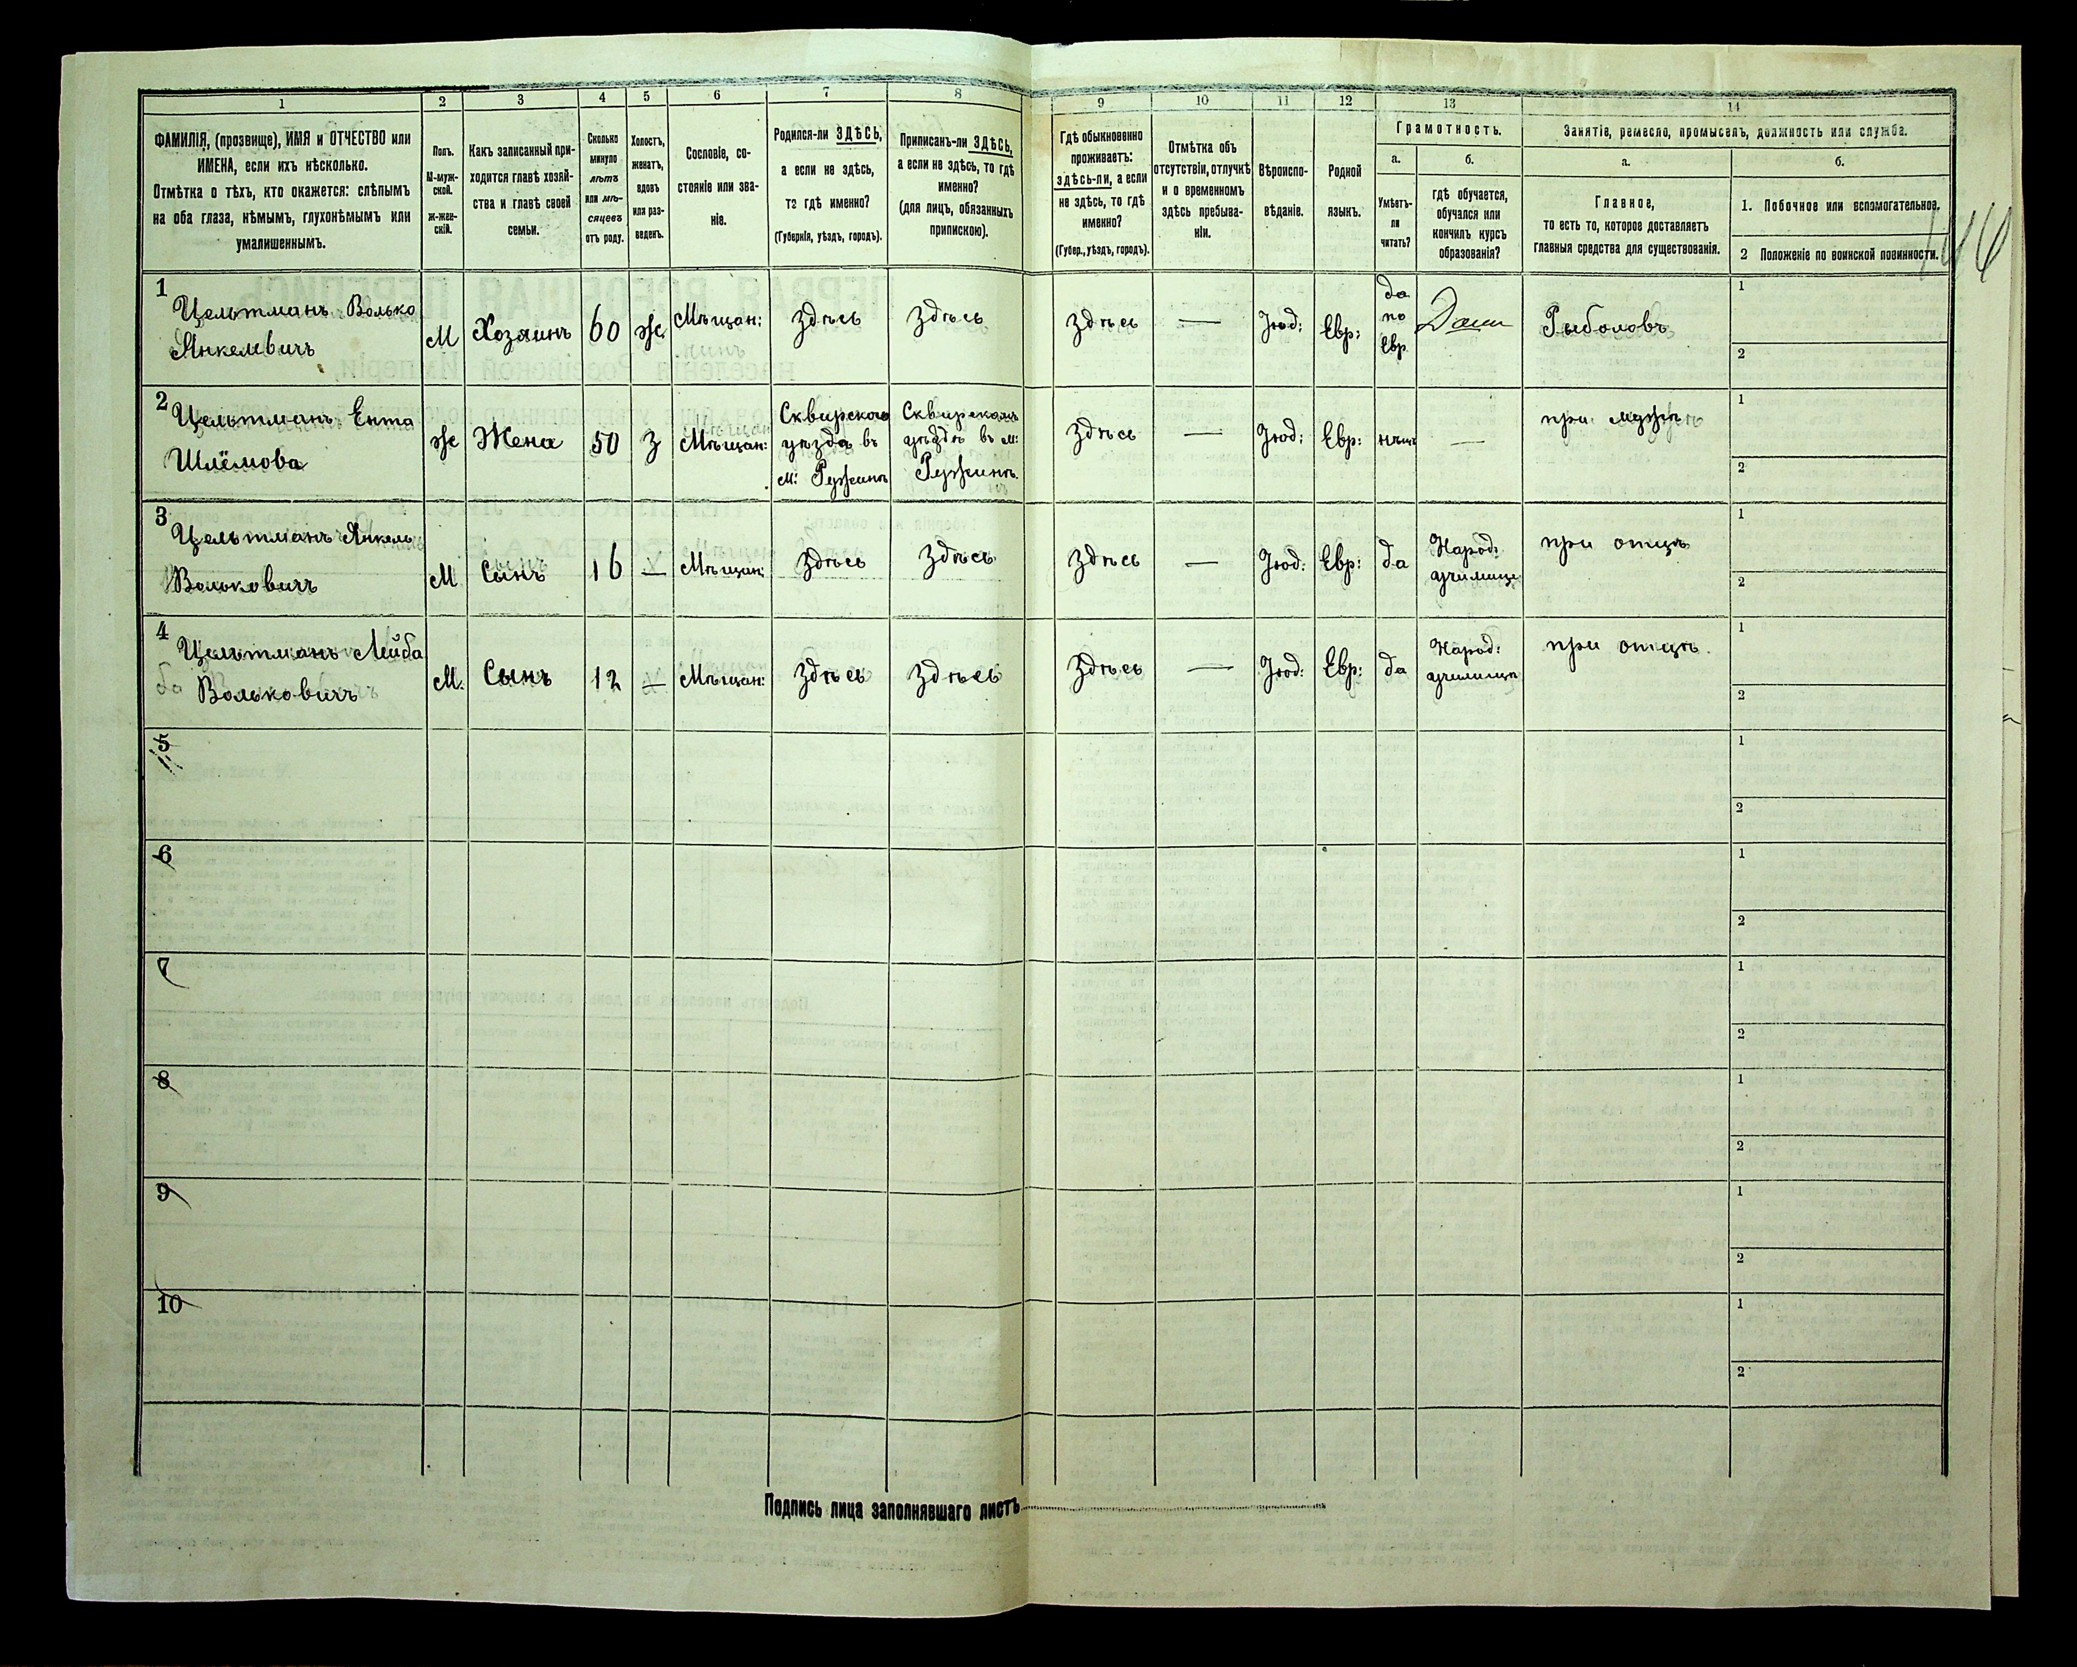 1 2 3 4 5 6 7 8 9 10 11 12 13 14
ФАМИЛІЯ, (прозвище), ИМЯ и ОТЧЕСТВО или
ИМЕНА, если ихъ нѣсколько.
Отмѣтка о тѣхъ, кто окажется: слѣпымъ
на оба глаза, нѣмымъ, глухонѣмымъ или
умалишеннымъ.
Полъ.
М-муж-
ской.
ж-жен-
скій.
Какъ записанный при-
ходится главѣ хозяй-
ства и главѣ своей
семьи.
Сколько
минуло
лѣтъ
или мѣ-
сяцевъ
отъ роду.
Холостъ,
женатъ,
вдовъ
или раз-
веденъ.
Сословіе, со-
стояніе или зва-
ніе.
Родился-ли ЗДѢСЬ,
а если не здѣсь,
то гдѣ именно?
(Губернія, уѣздъ, городъ).
Приписанъ-ли ЗДѢСЬ,
а если не здѣсь, то гдѣ
именно?
(для лицъ, обязанныхъ
припискою).
Гдѣ обыкновенно
проживаетъ:
здѣсь-ли, а если
не здѣсь, то гдѣ
именно?
(Губер., уѣздъ, городъ).
Отмѣтка объ
отсутствіи, отлучкѣ
и о временномъ
здѣсь пребыва-
ніи.
Вѣроиспо-
вѣданіе.
Родной
языкъ.
Грамотность.
а.
Умѣетъ-
ли
читать?
б.
гдѣ обучается,
обучался или
кончилъ курсъ
образованія?
Занятіе, ремесло, промыселъ, должность или служба.
а.
Главное,
то есть то, которое доставляетъ
главныя средства для существованія.
б.
1. Побочное или вспомогательное.
2 Положеніе по воинской повинности.
146
1
Цельтманъ Волько
Янкелевичъ
М
Хозяинъ
60
ж
Мѣщан:
здѣсь
здѣсь
здѣсь
—
Іюд:
Евр:
да
по
Евр.
Дома
Рыболовъ
1
2
2
Цельтманъ Ента
Шлёмова
ж
Жена
50
З
Мѣщан:
Сквирского
уѣзда въ
м: Ружинѣ
Сквирскомъ
уѣздѣ въ м:
Ружинѣ.
здѣсь
—
Іюд:
Евр:
нѣтъ
—
при мужѣ
1
2
3
Цельтманъ Янкель
Вольковичъ
М
Сынъ
16
—
Мѣщан:
здѣсь
здѣсь
здѣсь
—
Іюд:
Евр:
да
Народ:
училище
при отцѣ
1
2
4
Цельтманъ Лейба
Вольковичъ
М.
Сынъ
12
—
Мѣщан:
здѣсь
здѣсь
здѣсь
—
Іюд:
Евр:
да
Народ:
училище
при отцѣ.
1
2
5
1
2
6
1
2
7
1
2
8
1
2
9
1
2
10
1
2
Подпись лица заполнявшаго листъ